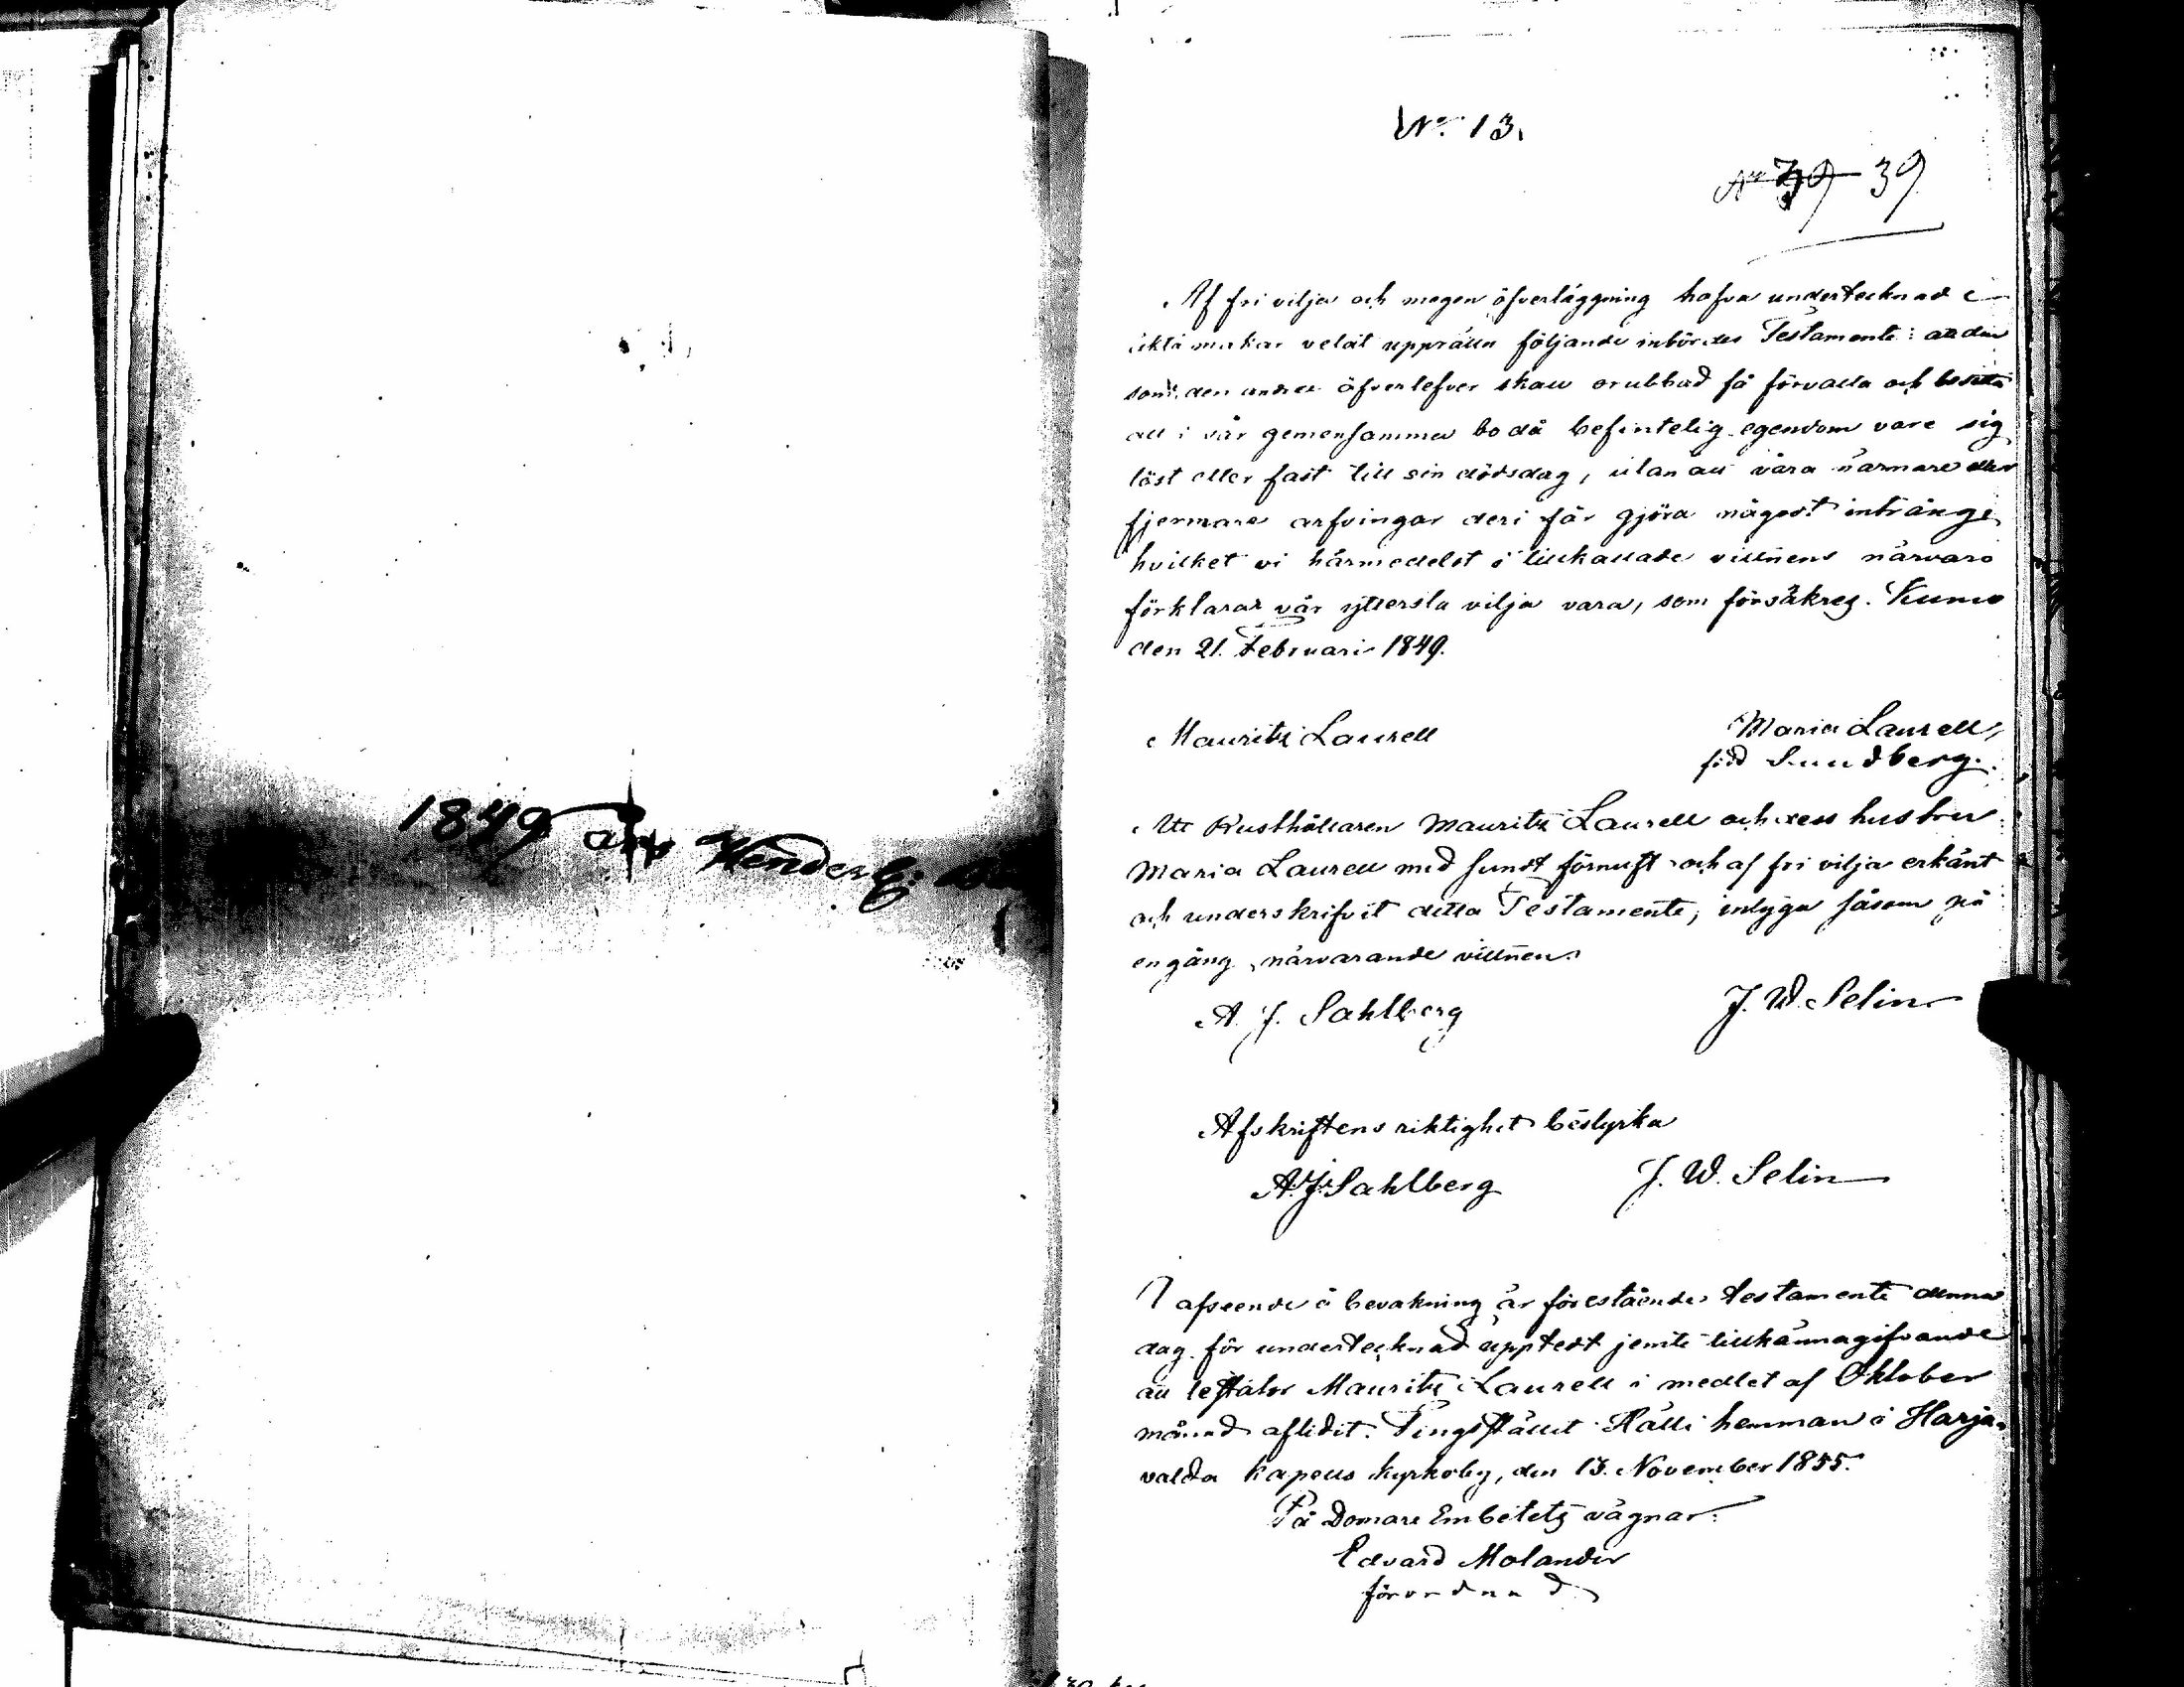 1849 Henders
No. 13.
No 39 39
Af fri vilja och mogen öfverläggning hafva undertecknade
äkta makar velat upprätta följande inbördes Testamente: att den
som den andra öfverlefver skall orubbad få förvalta och besitta
all i vår gemensamma bo då befintelig egendom vare sig
löst eller fast till sin dödsdag, utan att våra närmare eller
fjermare arfvingar deri får gjöra något intrånge,
hvilket vi härmedelst i tillkallade vittnens närvaro
förklarar vår yttersta vilja vara, som försäkras. Kumo
den 21. Februari 1849.
Mauritz Laurell Maria Laurell,
född Sundberg.
Att Rusthållaren Mauritz Laurell och dess hustru
Maria Laurell med sundt förnuft och af fri vilja erkänt
och underskrifvit detta Testamente, intyga såsom på
en gång närvarande vittnen.
A. J. Sahlberg J. W. Selin
Afskriftens riktighet bestyrka
A. J. Sahlberg J. W. Selin
I afseende å bevakning är förestående testamente denna
dag för undertecknad upptedt jemte tillkännagifvande
att testator Mauritz Laurell i medlet af Oktober
månad aflidit. Tingsstället Hälli hemman i Harja-
valda kapells kyrkoby, den 13. November 1855.
På Domare Embetets vägnar:
Edvard Molander
förordnad